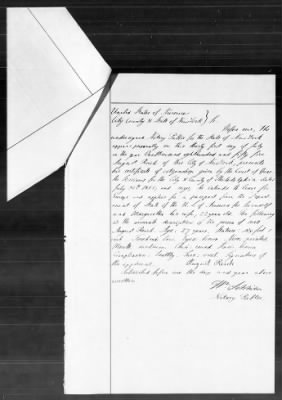 United States of America
City County & State of New York } ss.
Before me, the
undersigned Notary Public for the State of New York
appears personally on this thirty first day of July
in the year Eighteenhundred and fifty five
August Rauch of this City of New York, presents
his certificate of citizenship given by the Court of
the for the City & County of dated
July 30th 1855, and says, he intends to leave for
Europe and applies for a passport from the Depart
ment of State of the U. S. of America for himself
and Margarethe his wife, 22 years old. The following
is the correct description of the person of said
August Rauch. Age: 27 years, Stature: five feet 1
inch Forehead: Eyes: Nose: pointed
Mouth: medium Chin: round Hair: brown
Complexion: healthy, Face: oval. Signature of
the applicant. August Rauch
Subscribed before me the day and year above
written
Wm
Notary Public